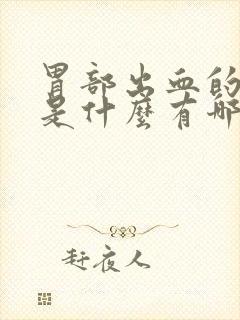 胃部出血的
是什麼有哪
赶夜人